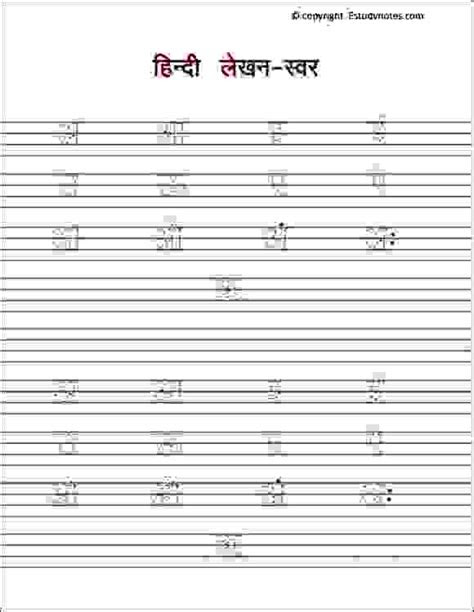 © copyright Estudynotes.com
हिन्दी लेखन-स्वर
अ आ इ ई
उ ऊ ए ऐ
ओ औ अं अः
ऋ
अ आ इ ई
उ ऊ ए ऐ
ओ औ अं अः
ऋ